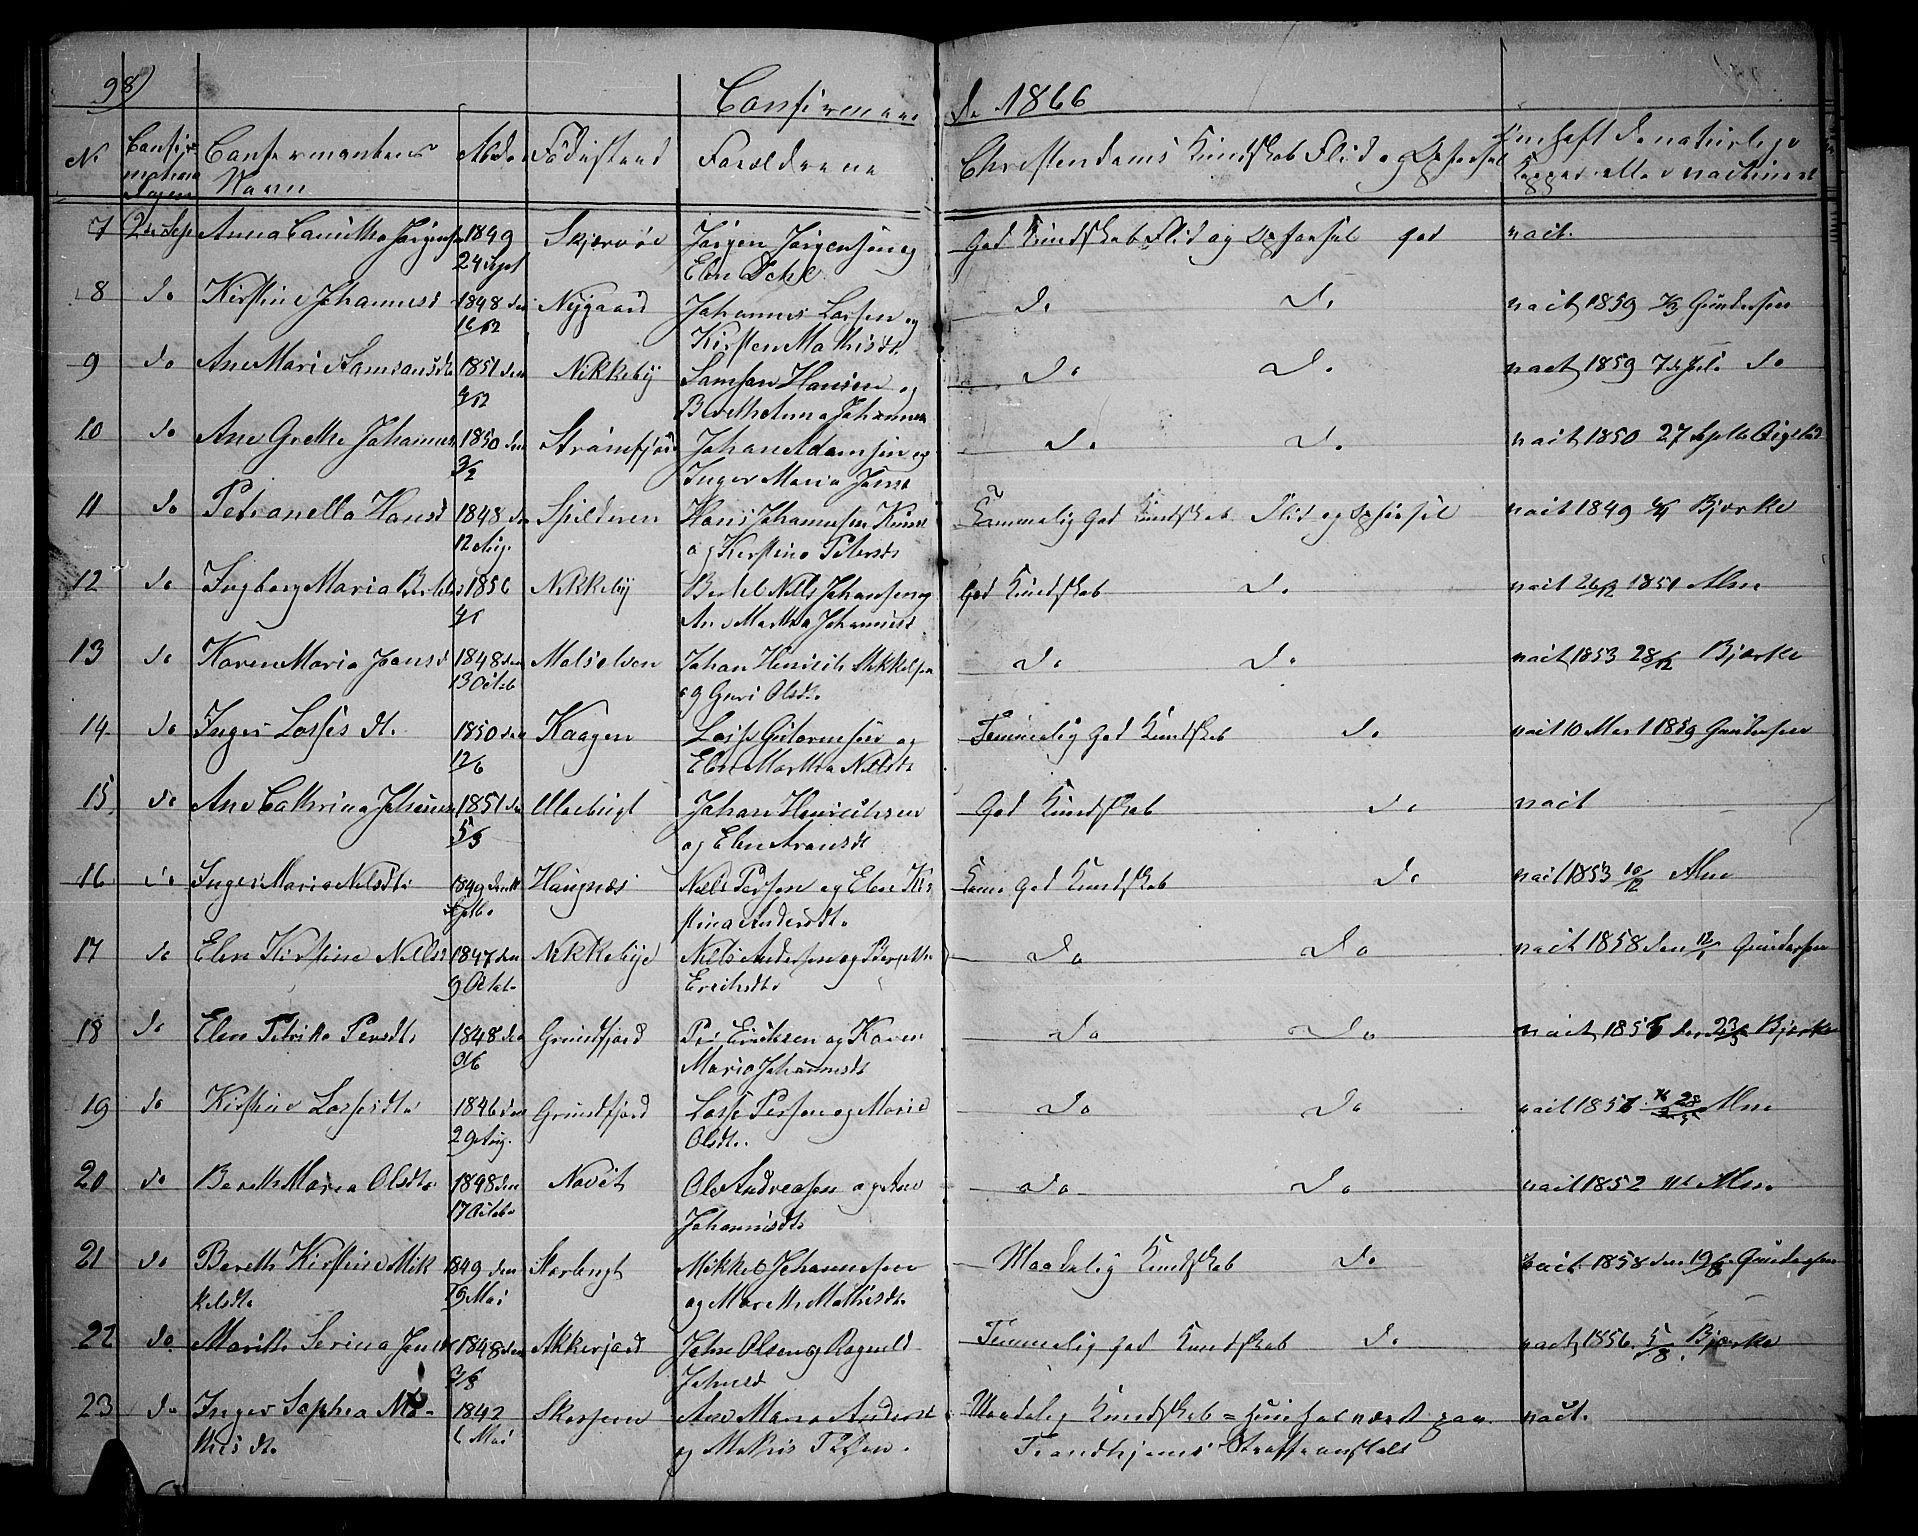 98)
Confirmerede 1866
No Confirmations Dagen Confirmantens Navn Alder Födestæd Forældrene Christendoms Kundskab Flid og Opførsel indsaft de naturlige Kopper eller vactineret
7 2den Sept Anna Camitha Jörgensd 1849 24 Sept Skjærvöe Jörgen Jörgensen og Elen Dehl God Kundskab Flid og Opførsel god vacit.
8 do Kirstine Johannesd 1848 den 16/12 Nygaard Johannes Lassen og Kirsten Mathisdt. do do vacit 1859 Gundersen
9 do Ane Mari Samsonsdt 1851 den /12 Nikkeby Samson Hansen og Berethe Anna Johannesd do do vacit 1859 7de Juli do
10 do Ane Grethe Johannes 1850 den 3/2 Strömfjord Johan Adamsen og Inger Maria Jonsd do do vacit 1850 27 Septb Qigstad
11 do Petronella Hansd 1848 den 12 Aug. Spilderen Hans Johannesen og Kirstine Petersdt Temmelig God Kundskab Flid og Opförsel vacit 1849 Bjerke
12 do Ingborg Maria Bertels 1850 4/1 Nikkeby Bertel Nils Johansen og Ane Martha Johannesd God Kundskab do vacit 26/12 1851 Alm
13 do Karen Maria Joansd 1848 den 13 Octob Malselven Johan Henrich Mikkelsen og Guri Olsdt. do do vacit 1853 28/12 Bjerke
14 do Inger Lassesdt. 1850 den 12/6 Kaagen Lasse Gutormsen og Elen Martha Nilsdt Temmelig God Kundskab do vacit 10 Mart 1859 Gundersen
15 do Ane Cathrina Johansd 1851 den 5/3 Johan Henrichsen og Elen Aronsdt God Kundskab do vacit
16 do Inger Maria Nilsdt. 1849 den Septb. Haugnæs Niels Persen og Elen Kirstina Andersdt. Tem God Kundskab do vacit 1853 10/12 Alm
17 do Elen Kirstine Nilsd 1847 den 9 Octob. Nikkebye Nils Andersen og Berethe Erichsdt. do do vacit 1858 den 12/1 Gundersen
18 do Elen Petrikka Persdt. 1848 den 9/6 Grundfjord Per Erichsen og Karen Maria Johannesdt do do vacit 185 den 23 Bjerke
19 do Kirstine Lassesdt. 1846 den 29 Aug. Grundfjord Lasse Persen og Marie Olsdt. do do vacit 185 28 Alm
20 do Bereth Maria Olsdt. 1848 den 17 Octob. Navöt Ole Andreasen og Ane Johannisdt. do do vacit 1852 Alm
21 do Bereth Kirstine Mikkelsdt. 1849 den 19 Mai Storbugt Mikkel Johannesen og Mareth Mathisdt. Maadelig Kundskab do vacit 1858 den 19/ Gundersen
22 do Marithe Serina Jens 1848 den /8 Akkerfjord John Olsen og Ragnild Johnsd Temmelig God Kundskab do vacit 1856 5/8. Bjerke
23 do Inger Sophia Mathisdt. 1842 6 Mai Ane Maria Andersd og Mathis Persen. Maadelig Kundskab = hun har været paa Trondhjems Straffeanstalt vacit.